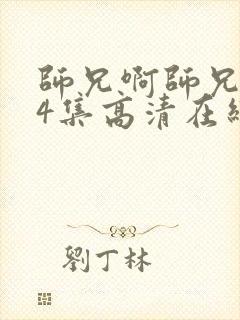 師兄啊師兄
4集高清在
劉丁林